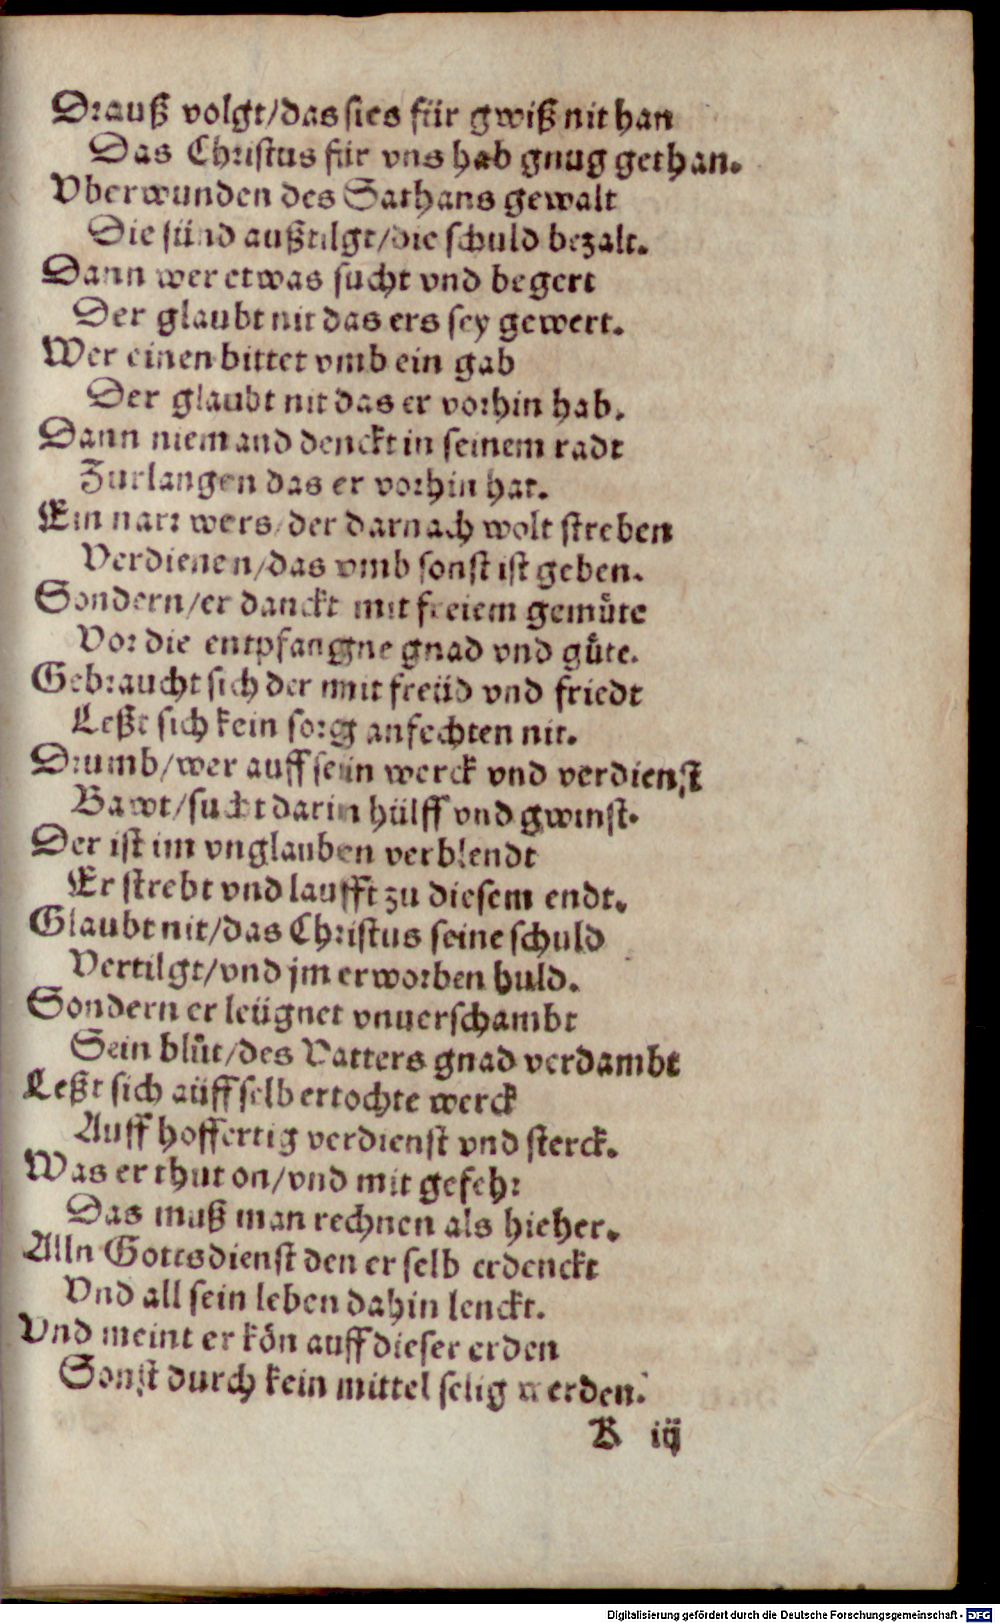 Drauß volgt/das sies für gwiß nit han
Das Christus für vns hab gnug gethan.
Vberwunden des Sathans gewalt
Die sünd außtilgt/die schuld bezalt.
Dann wer etwas sucht vnd begert
Der glaubt nit das ers sey gewert.
Wer einen bittet vmb ein gab
Der glaubt nit das er vorhin hab.
Dann niemand denckt in seinem radt
Zurlangen das er vorhin hat.
Ein narr wers/der darnach wolt streben
Verdienen/das vmb sonst ist geben.
Sondern/er danckt mit freiem gemüte
Vor die entpfangne gnad vnd güte.
Gebraucht sich der mit freüd vnd friedt
Leßt sich kein sorg anfechten nit.
Drumb/wer auff sein werck vnd verdienst
Bawt/sucht darin hülff vnd gwinst.
Der ist im vnglauben verblendt
Er strebt vnd laufft zu diesem endt.
Glaubt nit/das Christus seine schuld
Vertilgt/vnd jm erworben huld.
Sondern er leügnet vnuerschambt
Sein blüt/des Vatters gnad verdambt
Leßt sich auff selb ertochte werck
Auff hoffertig verdienst vnd sterck.
Was er thut on/vnd mit gefehr
Das muß man rechnen als hieher.
Alln Gottsdienst den er selb erdenckt
Vnd all sein leben dahin lenckt.
Vnd meint er kön auff dieser erden
Sonst durch kein mittel selig werden.
B iij
Digitalisierung gefördert durch die Deutsche Forschungsgemeinschaft - DFG